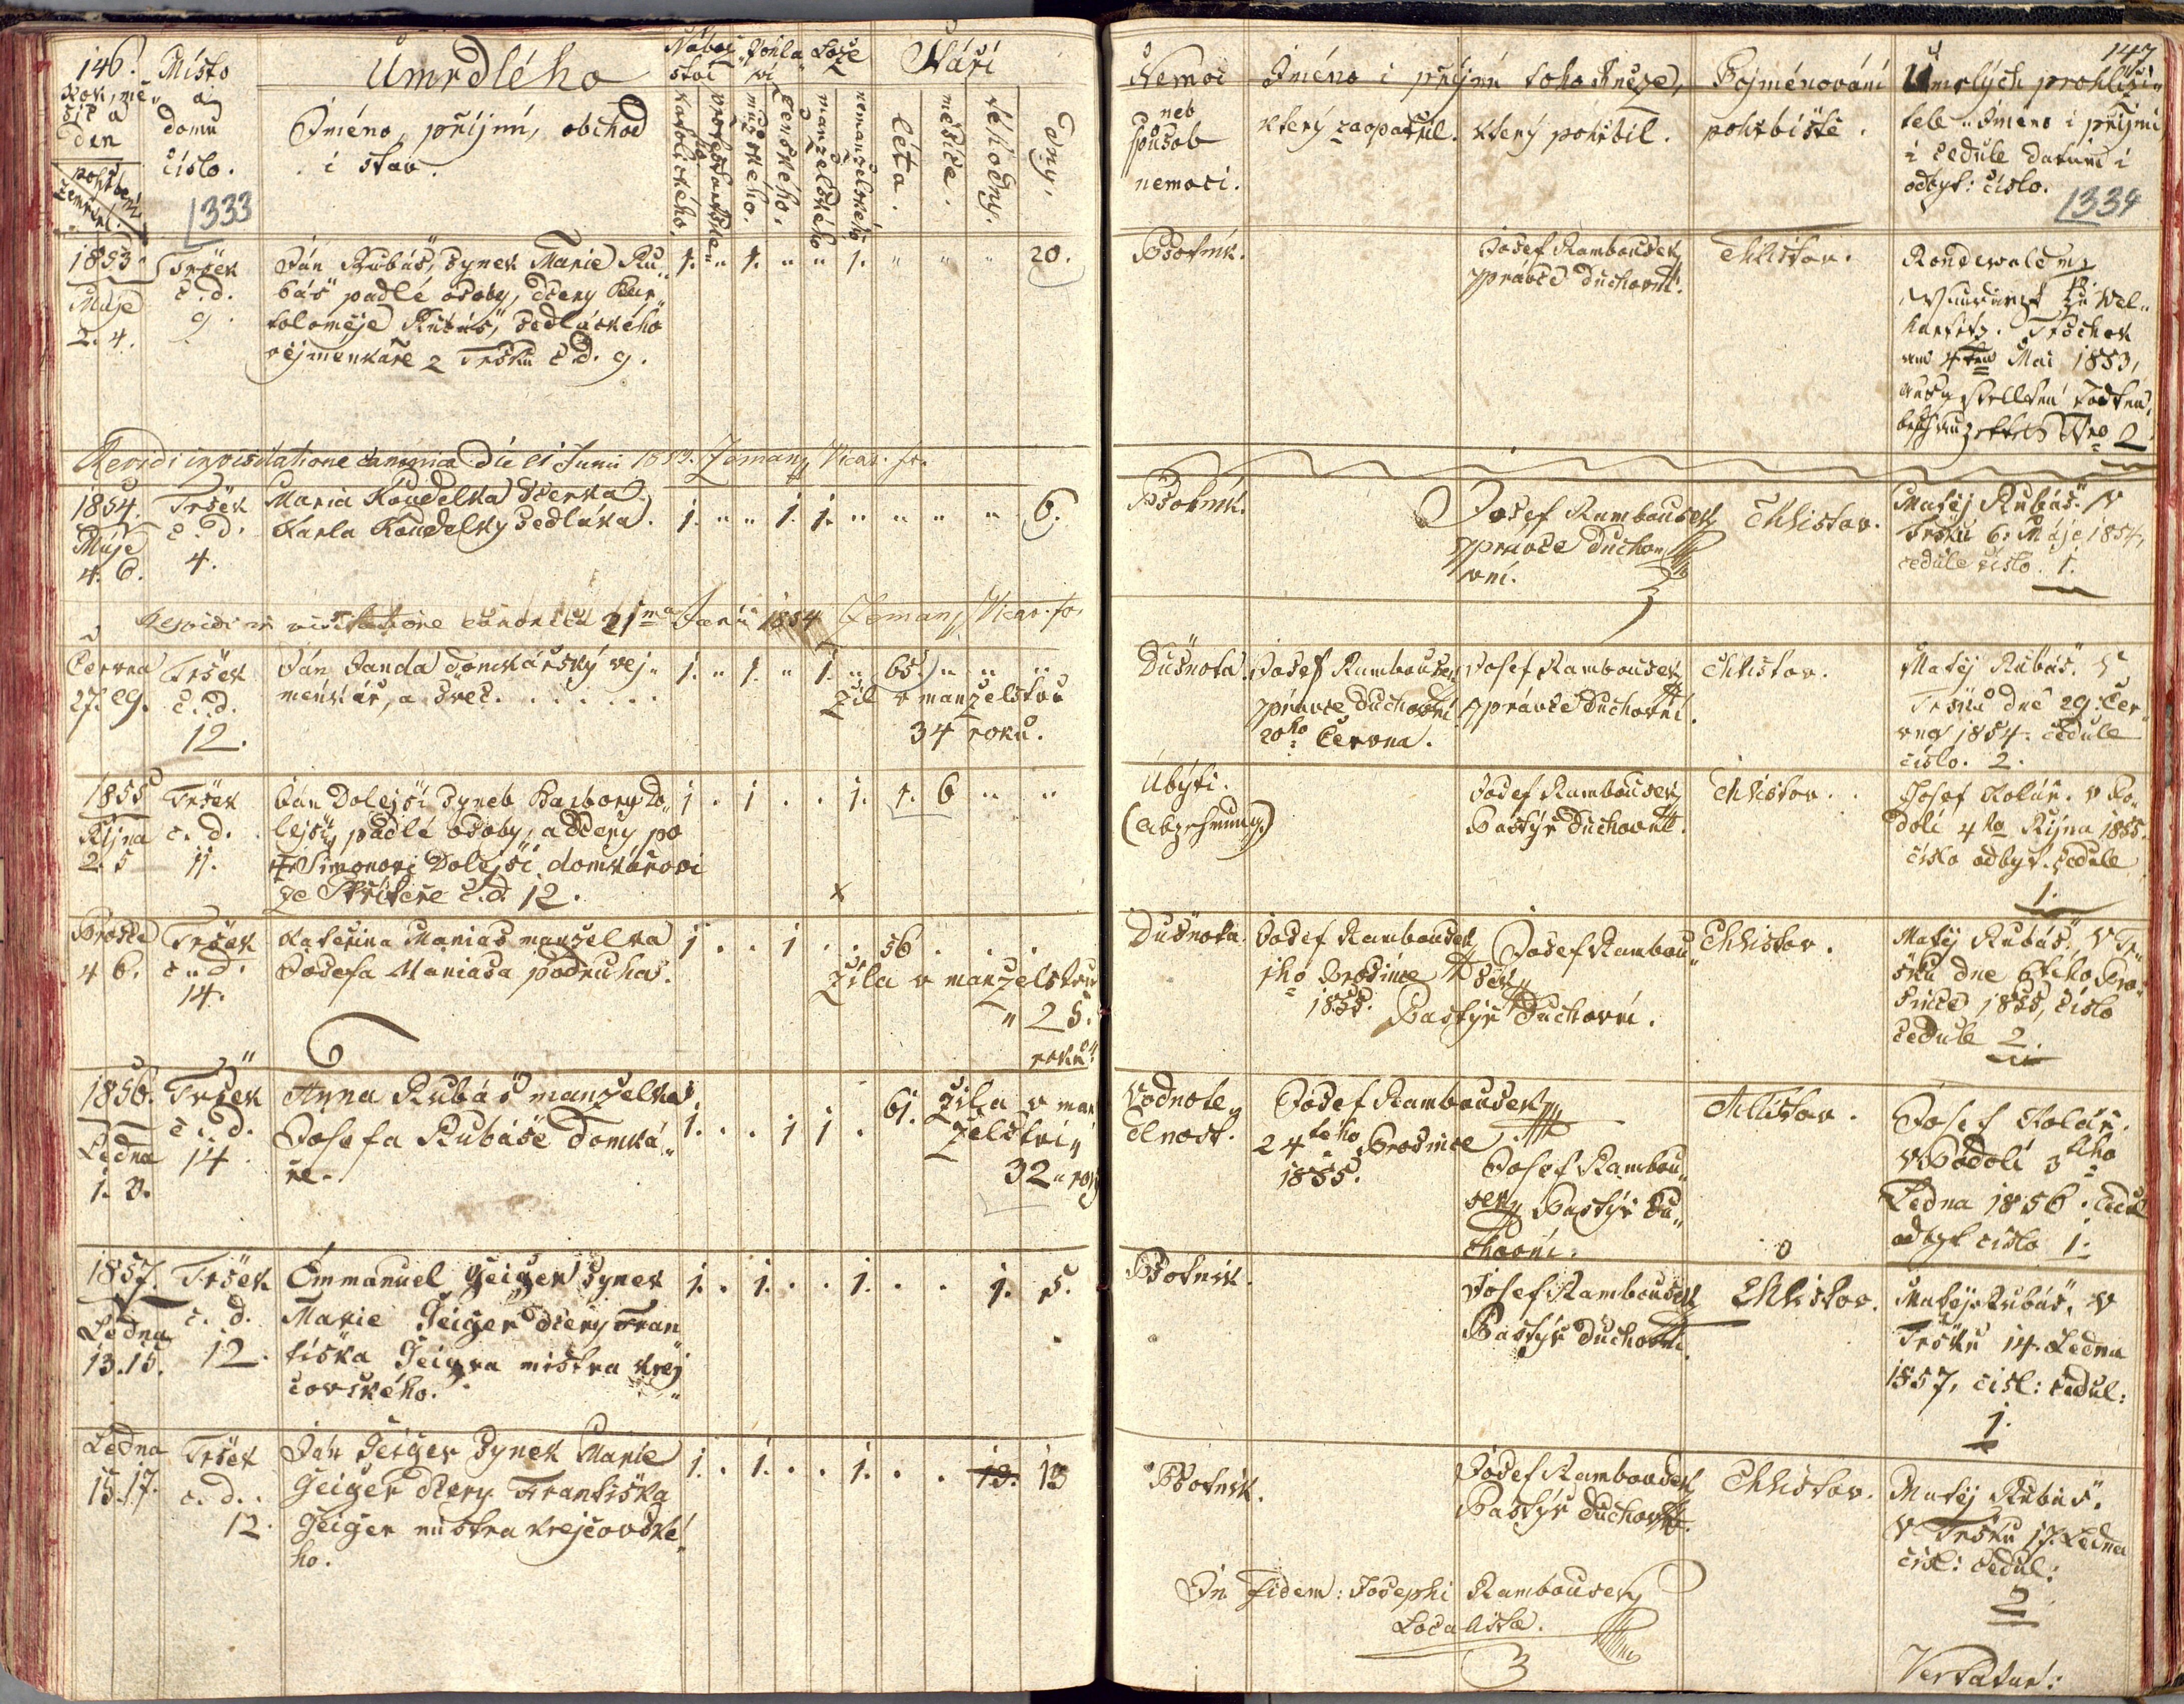 146.
Rok, mě„
síc a
den
pohřbení
zemření.
Místo
a
domu
číslo.
1333
Umrdlého
Iméno, příjmí, obchod
i stav.
Nábož„
ství
katolického.
protestantské
Pohla„
ví
mužského.
ženského.
Lože
manželského
nemanželského
Stáří
léta.
měsíce.
téhodny.
dny.
1853.
Máje
2. 4.
Tršek
č. d.
9.
Ján Rubáš, synek Marie Ru„
báš padlé osoby, dcery Bar„
toloměje Rubáš, sedláckého
vejmenkáře z Tršku č. d. 9.
1. „ „ 1. „ „ 1. „ „ „ 20.
Revidi in visitatione canonica die 21 Junii 1853. Zeman, Vicar. for.
1854.
Máje
4. 6.
Tršek
č. d.
4.
Maria Koudelka dcerka
Karla Koudelky sedláka.
1. „ „ 1. 1. „ „ „ „ 6.
Revidi in visitatione canonica 21ma Junii 1854 Zeman, Vicar. for
Června
27. 29.
Tršek
č. d.
12.
Ján Janda domkářský vej„
menkář, a švec. . . . . . .
1. „ 1. „ 1. „ 65. „ „ „
žil v manželstvu
34 roků.
1855
Října
2. 5
Tršek
č. d.
11.
Ján Dolejší synek Barbory Do„
lejší, padlé osoby, a dcery po
† Simonovi Dolejší domkárovi
ze Skřítere č. d. 12.
1 . 1 . . 1. 1. 6 „ „
x
Prosce
4 6.
Tršek
č. d.
14.
Kateřina Manias manželka
Josefa Maniasa podruha.
1 . . 1 . . 56 . . .
žila v manželstvu
„ 25.
roků.
1856.
Ledna
1. 3.
Tršek
č. d.
14
Anna Rubáš manželka
Josefa Rubáše domká„
ře.
1. . . 1 1 . 61. žila v man
želství„
32 „ roky
1857.
Ledna
13. 15.
Tršek
č. d.
12.
Emmanuel Geiger synek
Marie Geiger dcery Fran
tiška Geigra mistra krej
čovského.
1. . 1. . . 1. . . 1. 5.
Ledna
15. 17.
Tršek
č. d.
12.
Ján Geiger synek Marie
Geiger dcery Františka
Geiger mistra krejčovské„
ho.
1. . 1. . . 1. . . 13. 13
147
Nemoc
neb
spůsob
nemoci.
Iméno i příjmí toho kněze,
který zaopatřil.
který pohřbil.
Pojménování
pohřbiště.
Umrlých prohlíži„
tele Iméno i příjmí
i cedule datum i
odbyt: číslo.
1334
Psotník.
Josef Rambousek
zprávce duchovní.
Chlistov.
Mai 1853,
Nro 2
Psotník.
Josef Rambousek
zprávce ducho„
vní.
Chlistov.
Matěj Rubáš. V
Tršku 6. Máje 1854,
cedule číslo. 1.
Dušnota.
Josef Rambousek
zprávce duchovní
20ho Června.
Josef Rambousek
zprávce duchovní.
Chlistov.
Matěj Rubáš. V
Tršku dne 29. Čer„
vna 1854. cedule
číslo. 2.
Úbytí.
(Abzehrung.)
Josef Rambousek
Pastýř duchovní.
Chlistov.
Josef Kolář. v Po„
dolí 4ho Října 1855.
číslo odbyt. cedule
1.
Dušnota.
Josef Rambousek
1ho Prosince
1855.
Josef Rambou„
sek
Pastýř duchovní.
Chlistov.
Matěj Rubáš. V Tr„
šku dne 6tého Pro„
since 1855, číslo
cedule 2.
Vodnote„
dlnost.
Josef Rambousek
24tého Prosince
1855.
Josef Rambou„
sek Pastýř du„
chovní.
Chlistov.
Josef Kolář.
V Podolí 3tího
Ledna 1856. cedul
odbyt číslo 1.
Psotník.
Josef Rambousek
Pastýř duchovní.
Chlistov.
Matěj Rubáš, V
Tršku 14. Ledna
1857, čísl: cedul:
1.
Psotník.
Josef Rambousek
Pastýř duchovní.
Chlistov.
Matěj Rubáš.
V Tršku 17. Ledna
čísl: cedul:
2
In fidem: Josephi Rambousek
Localista.
Vertatur: